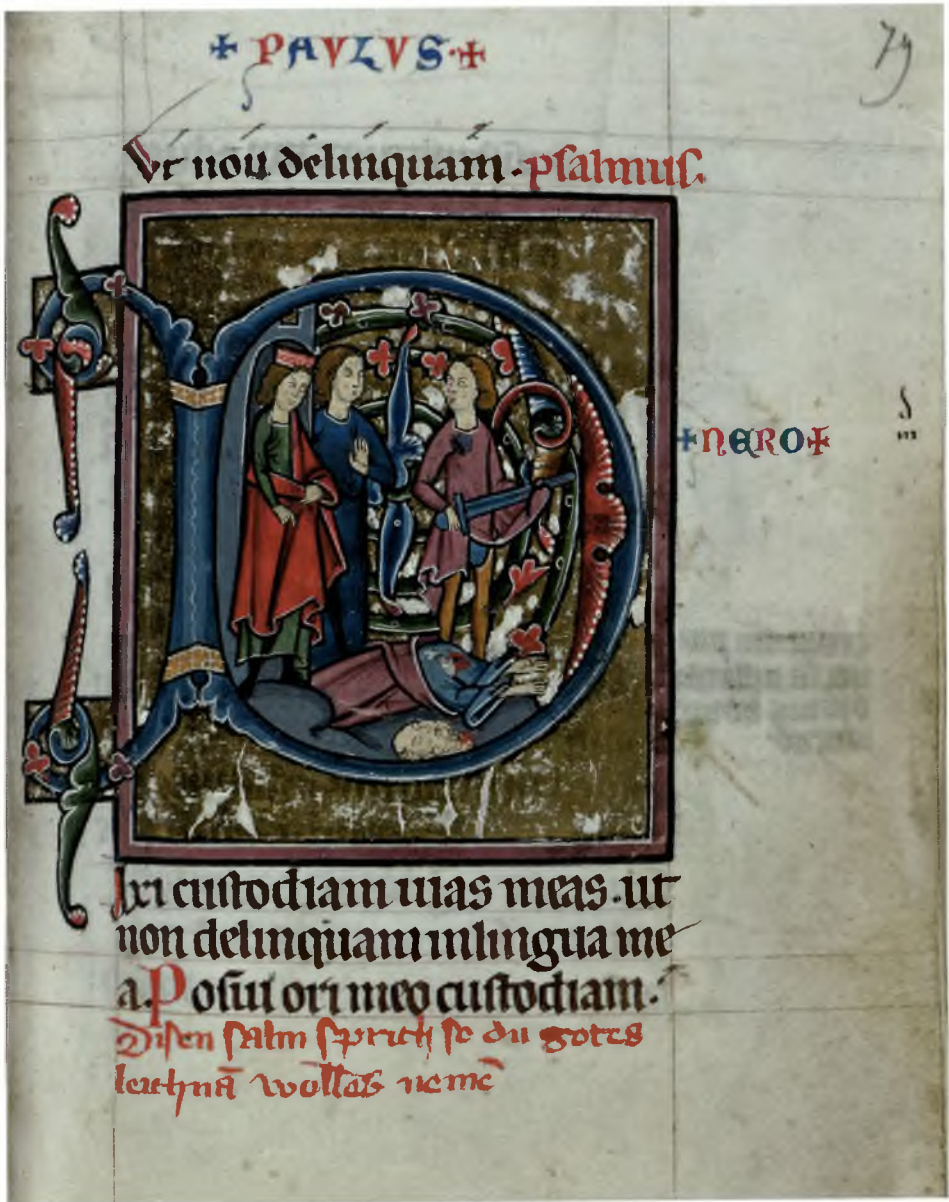 + PAVLVS·+
79
Ut non delinquam·psalmus·
+NERO+
ixi custodiam uias meas·ut
non delinquam inlingua me
a·Posui ori meo custodiam·
Disen salm sprich so du gotes
leichnā wolles nemē